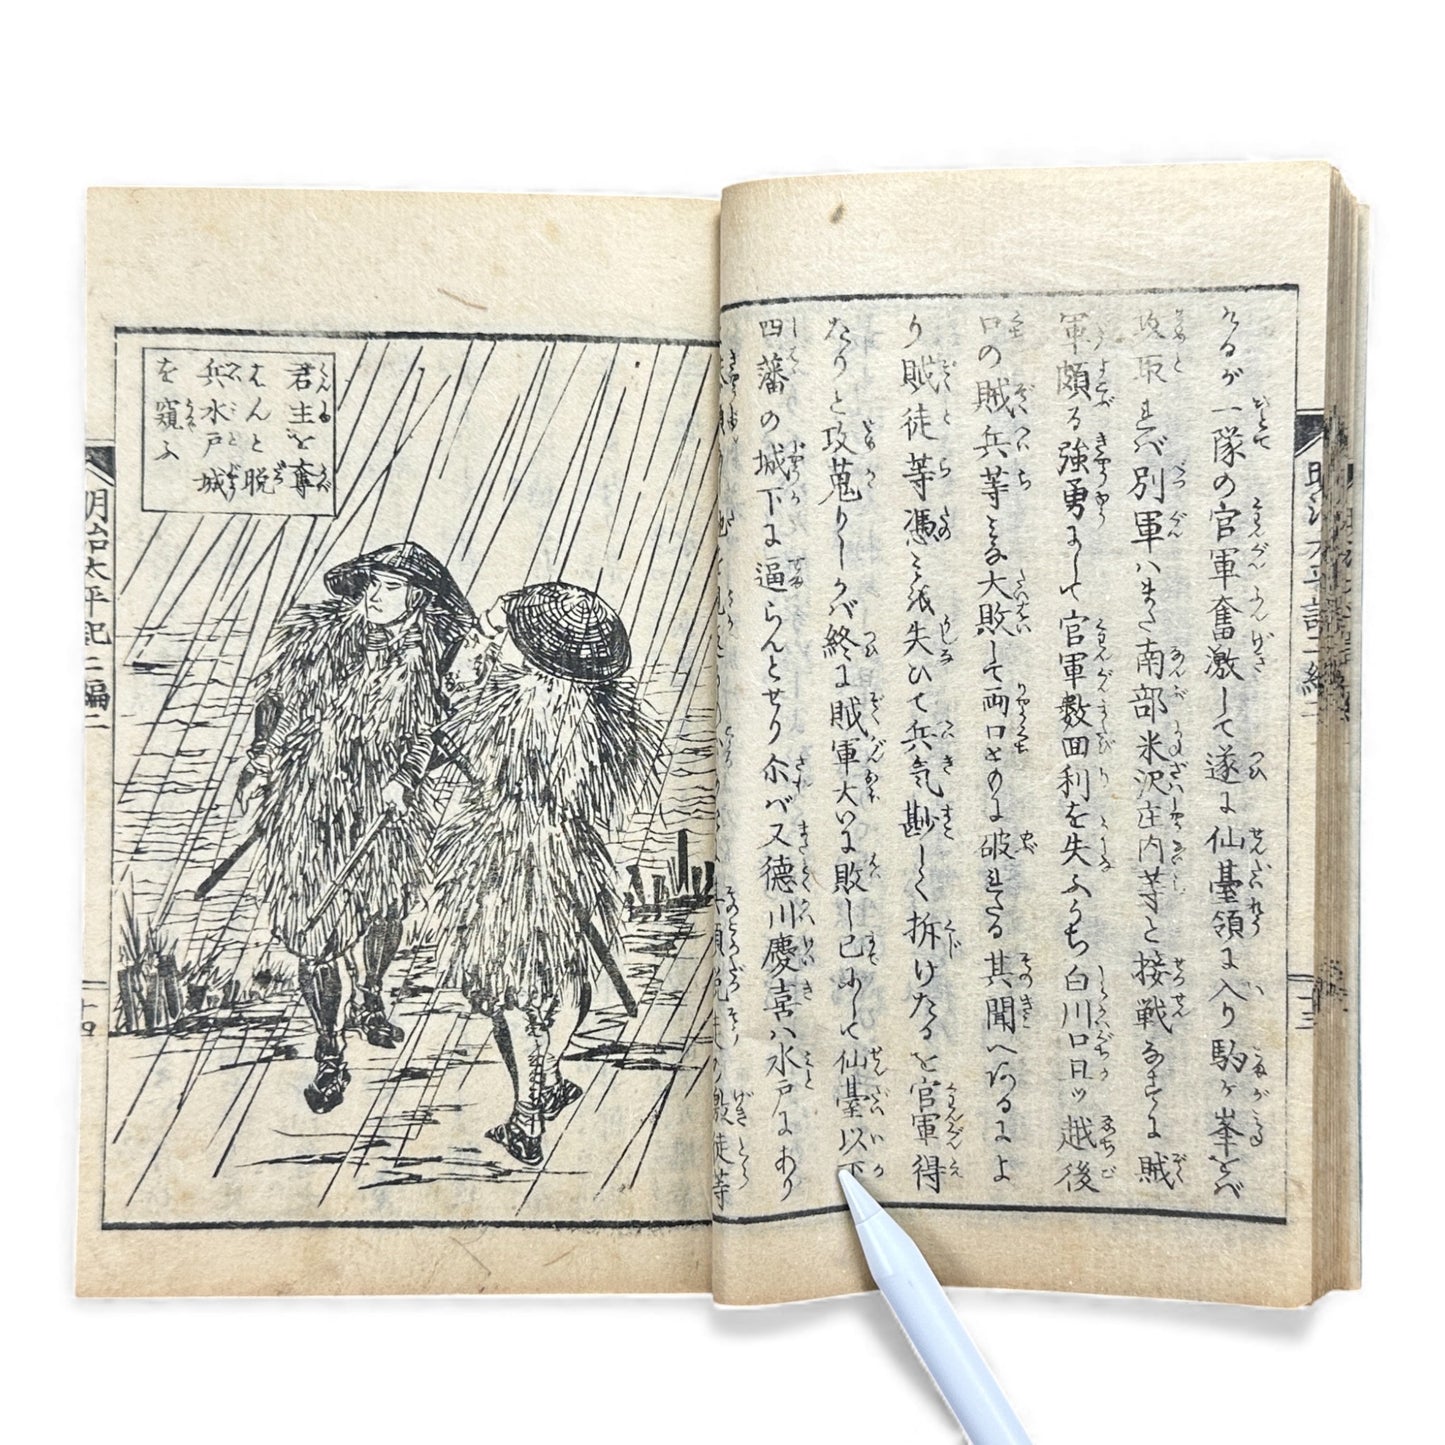 けるが一隊の官軍奮激して遂に仙臺領に入り駒ヶ峯をバ
攻取れバ別軍ハまた南部米沢庄内等と接戦なすに賊
軍頗る強勇にして官軍数回利を失ふうち白川口且ッ越後
口の賊兵等みな大敗して両口ともに破れたる其聞へあるによ
り賊徒等憑みを失ひて兵気尠しく拆けたるを官軍得
たりと攻蒐りしかバ終に賊軍大いに敗し已にして仙臺以下
四藩の城下に逼らんとせり尓バ又德川慶喜ハ水戸にあり
激徒等
君主を奪
はんと脱
兵水戸城
を窺ふ
明治太平記二編二
十四